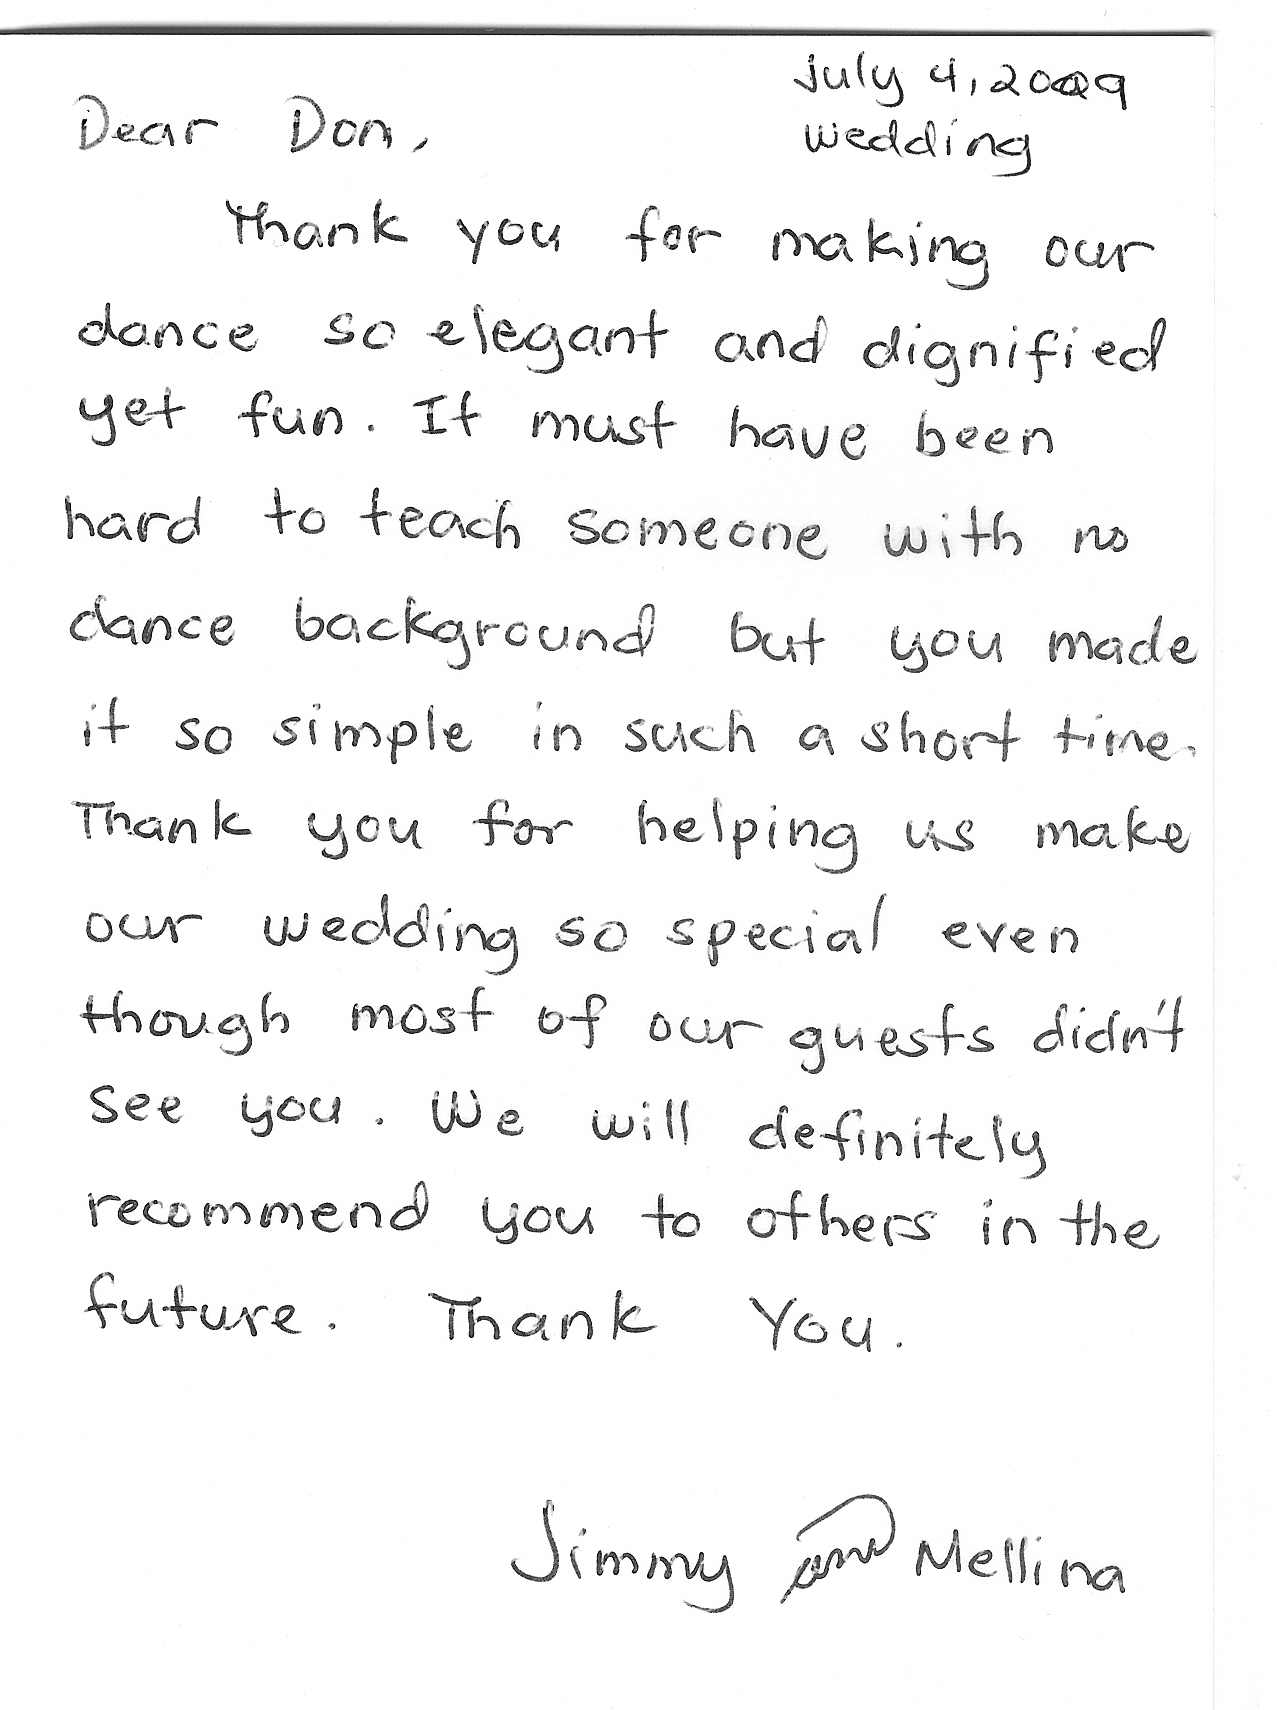 July 4, 2009
wedding
Dear Don,
Thank you for making our
dance so elegant and dignified
yet fun. It must have been
hard to teach someone with no
dance background but you made
it so simple in such a short time.
Thank you for helping us make
our wedding so special even
though most of our guests didn't
see you. We will definitely
recommend you to others in the
future. Thank You.
Jimmy and Mellina